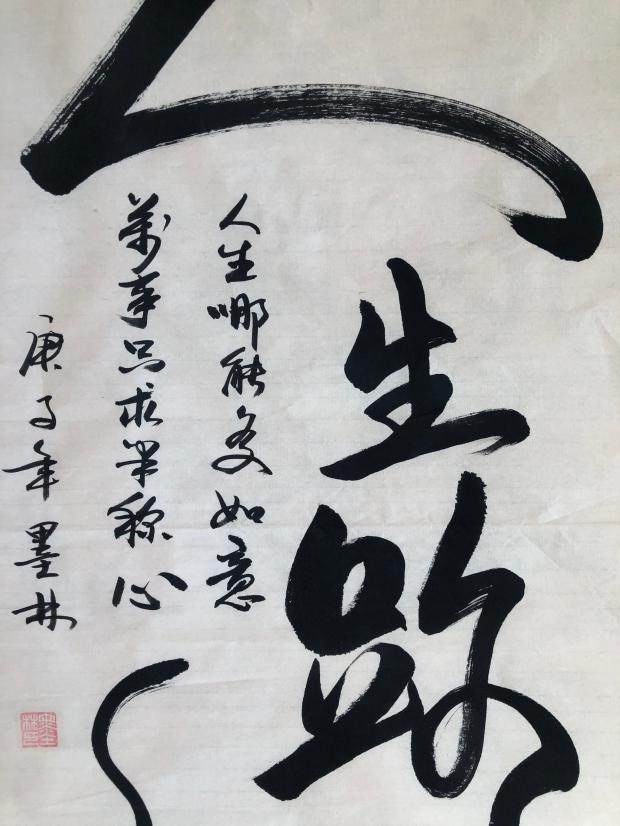 人生路
人生哪能多如意
萬事只求半称心
庚子年墨林